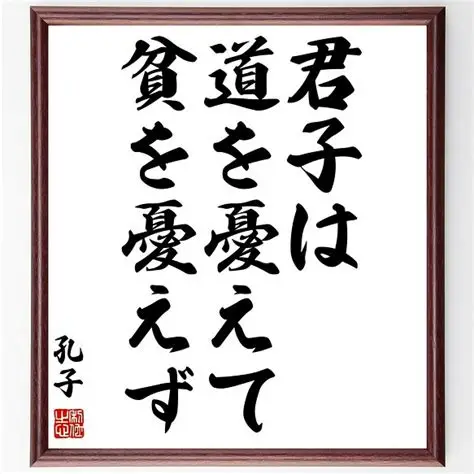 君子は
道を憂えて
貧を憂えず
孔子